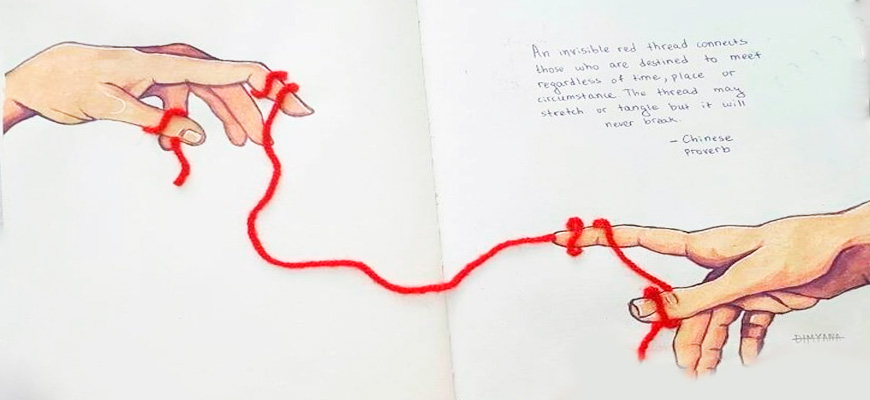 An invisible red thread connects
those who are destined to meet
regardless of time, place or
circumstance. The thread may
stretch or tangle but it will
never break.
- Chinese
proverb
DIMYANA